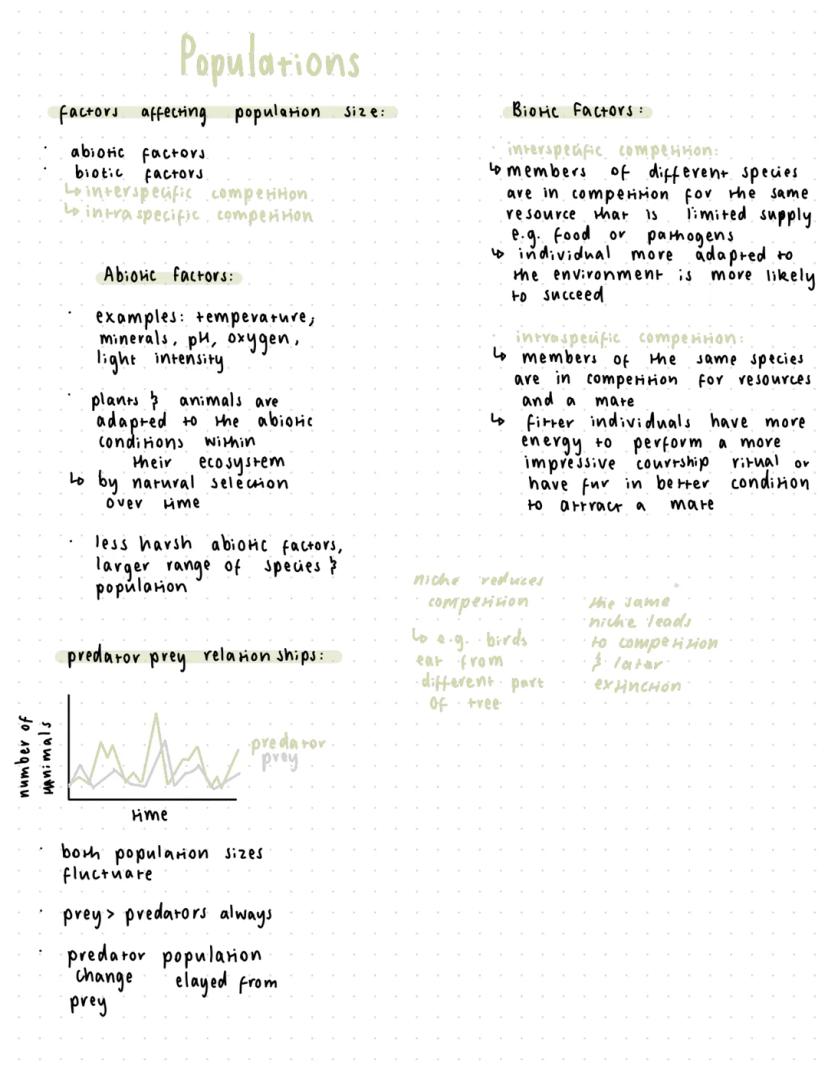 Populations
factors affecting population size:
· abiotic factors
· biotic factors
↳ interspecific competition
↳ intraspecific competition
Abiotic Factors:
· examples: temperature,
minerals, pH, oxygen,
light intensity
· plants & animals are
adapted to the abiotic
conditions within
their ecosystem
↳ by natural selection
over time
· less harsh abiotic factors,
larger range of species &
population
predator prey relationships:
number of
animals
predator
prey
time
· both population sizes
fluctuate
· prey > predators always
· predator population
change elayed from
prey
Biotic Factors:
· interspecific competition:
↳ members of different species
are in competition for the same
resource that is limited supply
e.g. food or pathogens
↳ individual more adapted to
the environment is more likely
to succeed
· intraspecific competition:
↳ members of the same species
are in competition for resources
and a mate
↳ fitter individuals have more
energy to perform a more
impressive courtship ritual or
have fur in better condition
to attract a mate
niche reduces
competition
↳ e.g. birds
eat from
different part
of tree
the same
niche leads
to competition
& later
extinction